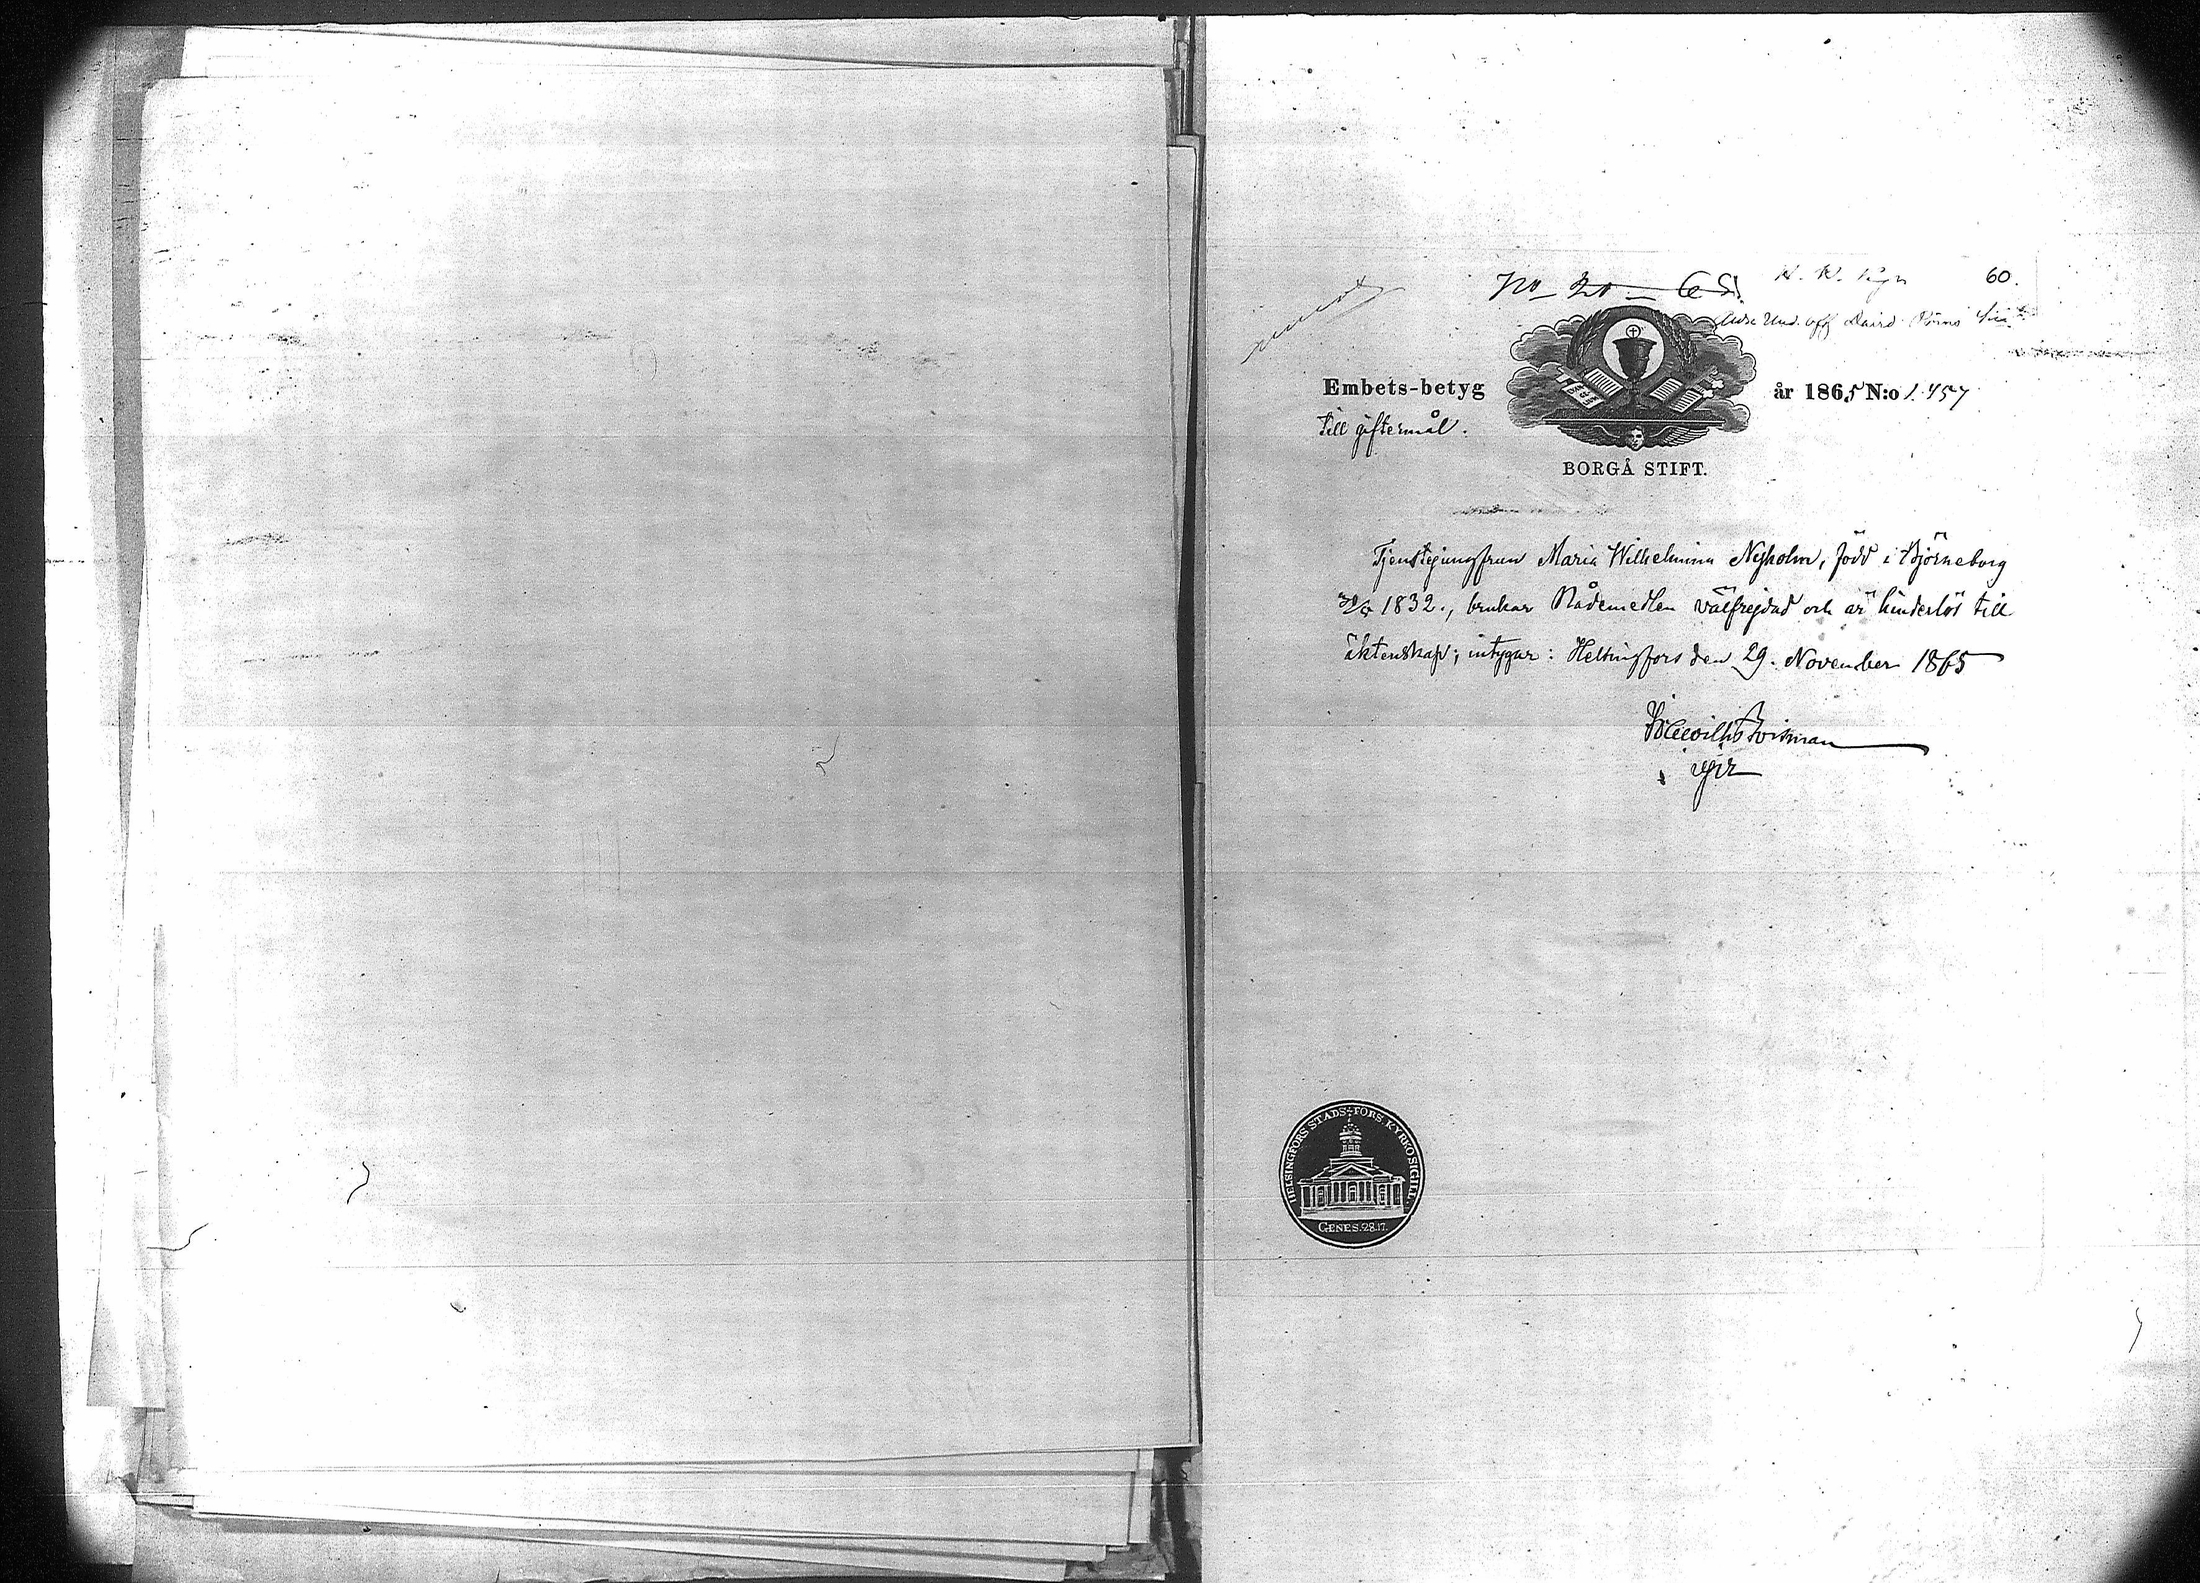 60.
Embets-betyg
år 1865 N:o 1.457
till giftermål.
BORGÅ STIFT.
Tjenstejungfrun Maria Wilhelmina Nyholm, född i Björneborg
1832., brukar Nådemedlen välfrejdad och är hinderlös till
äktenskap; intygar: Helsingfors den 29. November 1865
HELSINGFORS STADS FÖRS. KYRKOSIGILL.
GENES. 28.17.